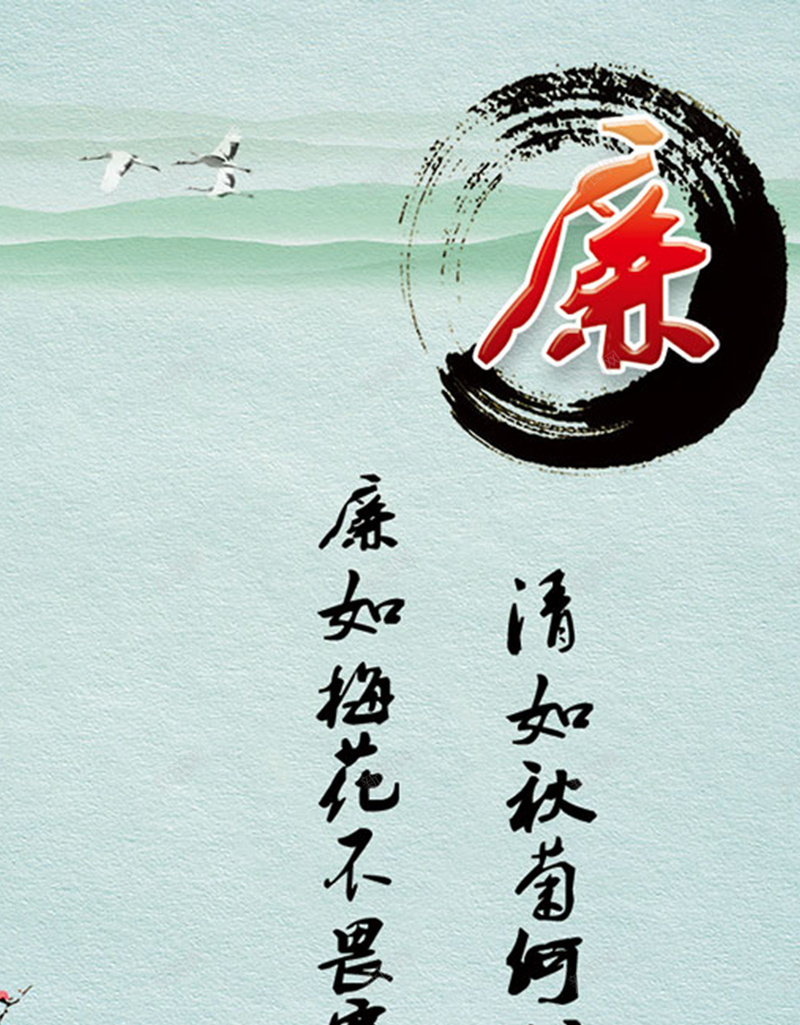 廉
清如秋菊何
廉如梅花不畏